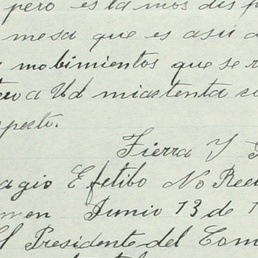 pero estamos dis
mesa que es asii
mobimientos que se
a Ud miatenta
specto.
Tierra Y
agio Efetibo No Ree
men Junio 13 de 1
El Presidente del Com